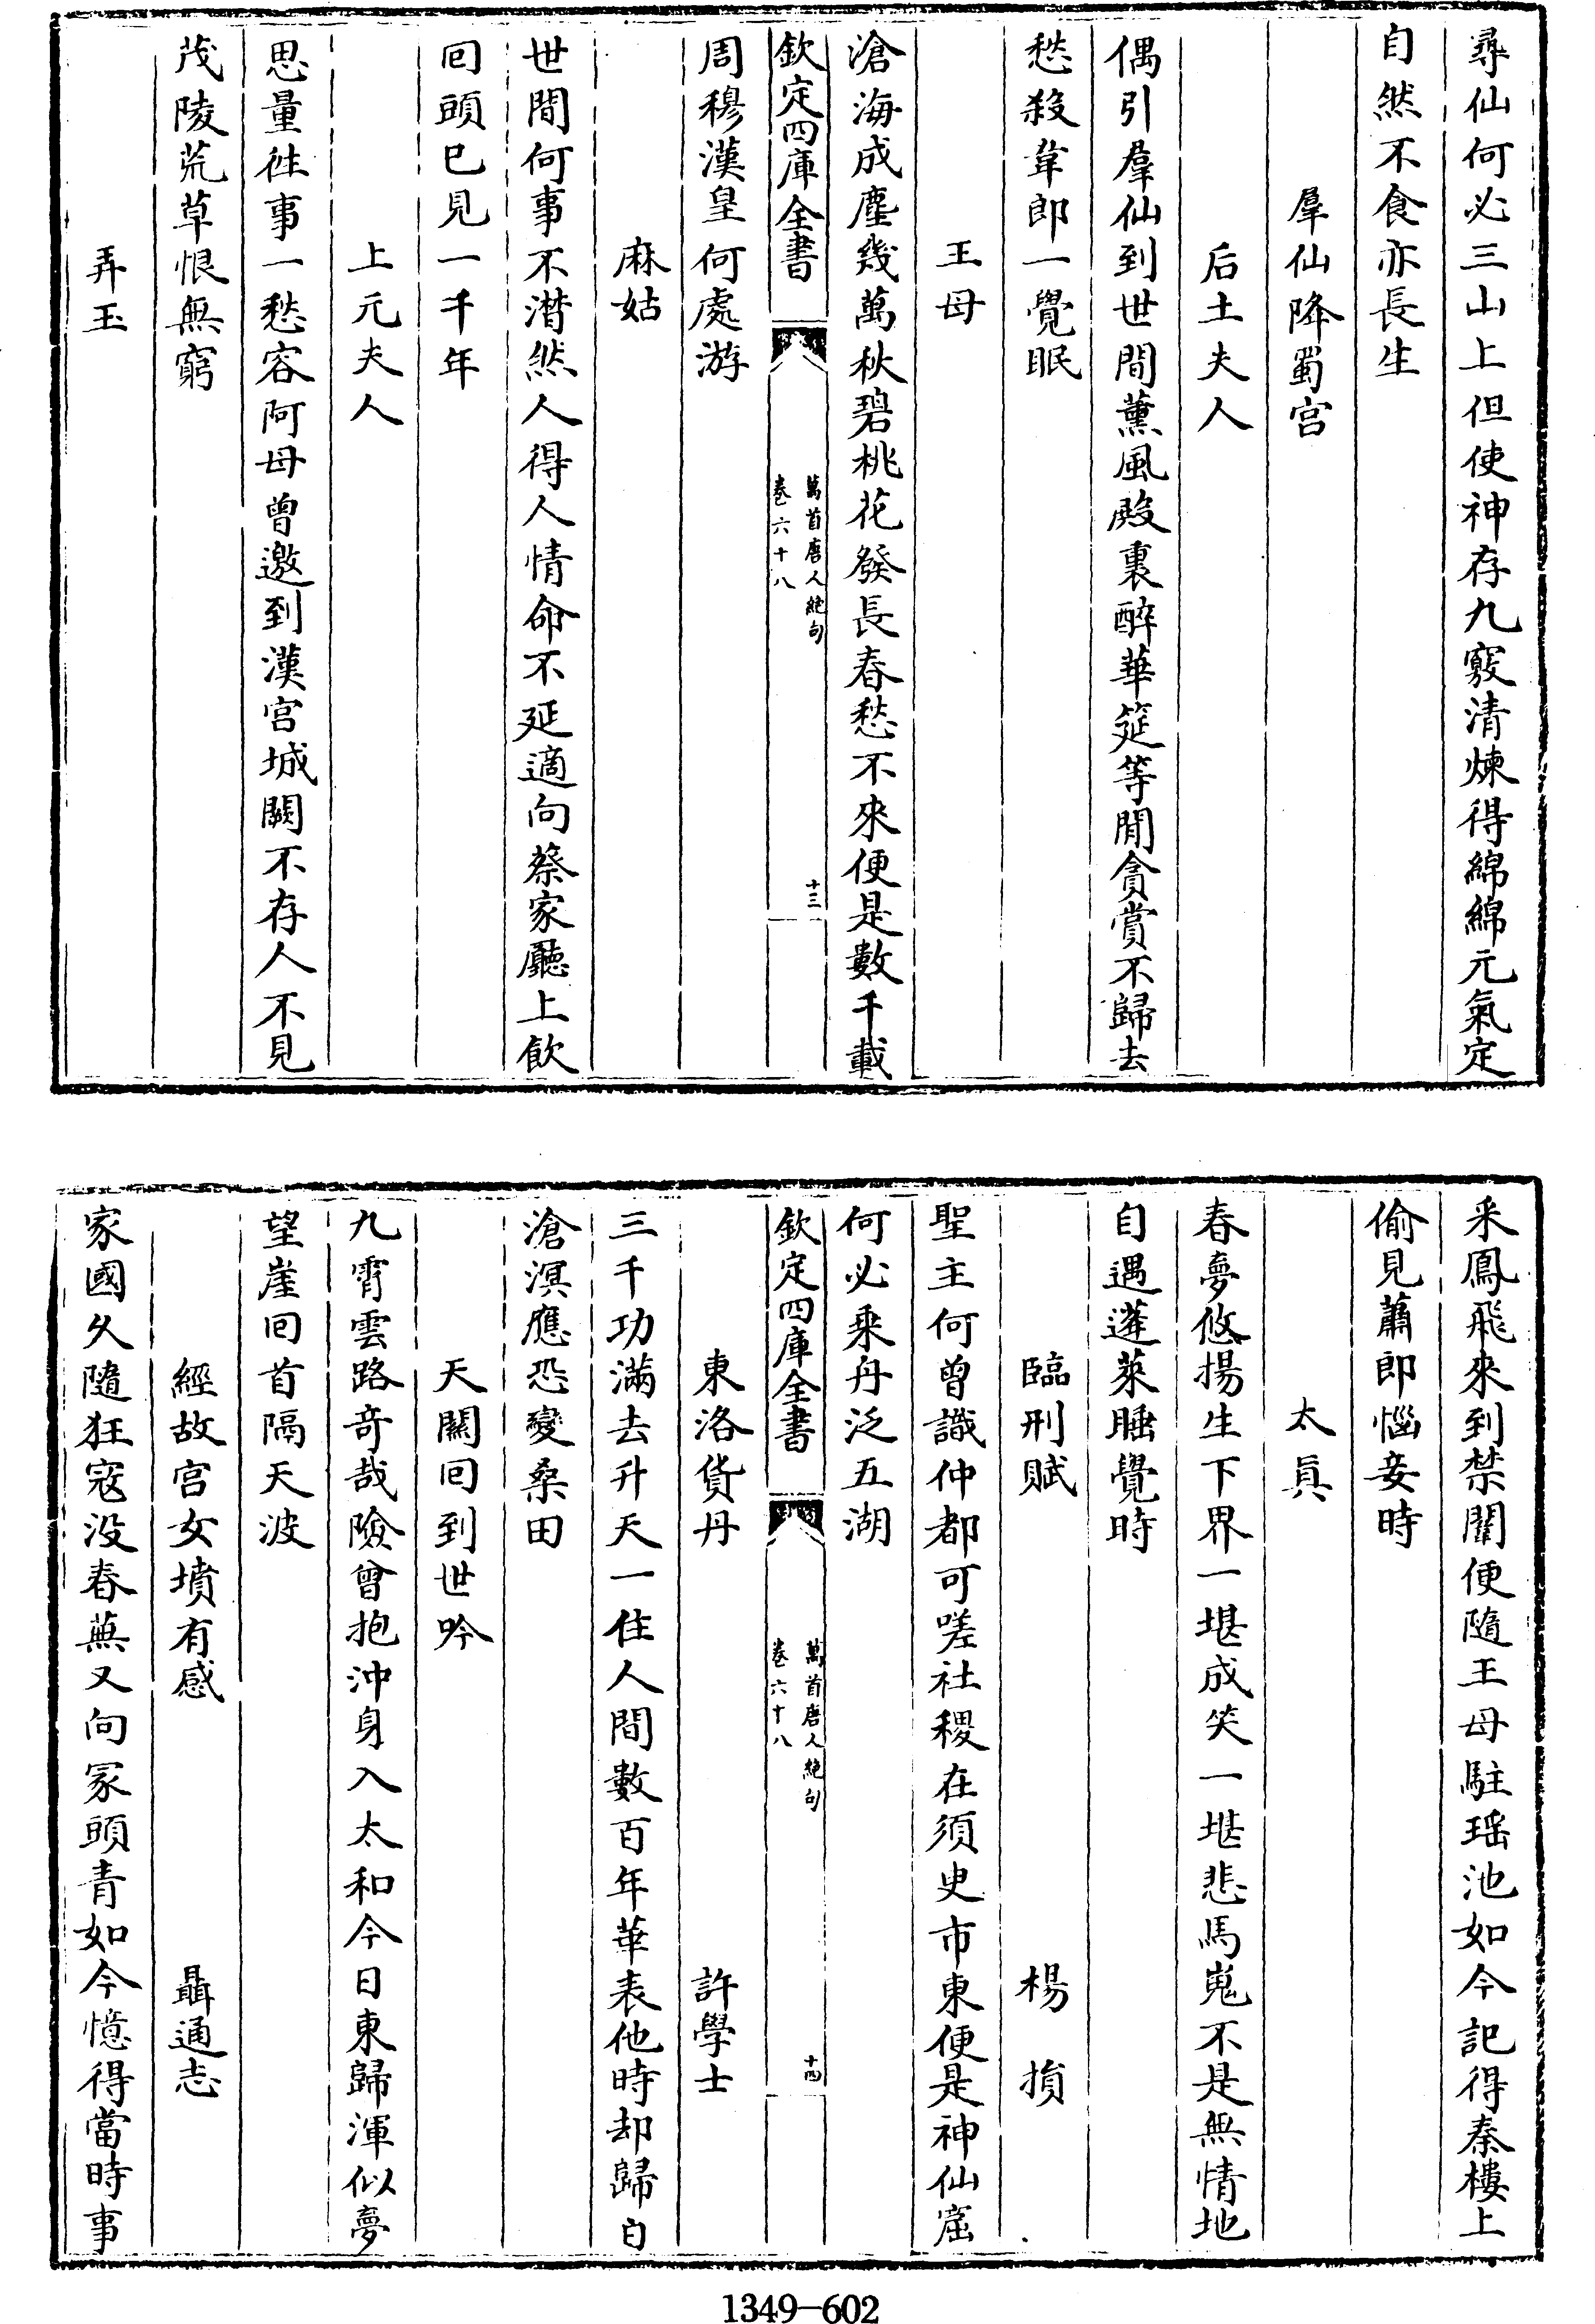 尋仙何必三山上但使神存九竅清煉得綿綿元氣定
自然不食亦長生
羣仙降蜀宫
后土夫人
偶引羣仙到世間薰風殿裏醉華筵等閒貪賞不歸去
愁殺韋郎一覺眠
王母
滄海成塵幾萬秋碧桃花發長春愁不來便是數千載
欽定四庫全書
萬首唐人絶句
卷六十八
十三
周穆漢皇何處游
麻姑
世間何事不潸然人得人情命不延適向蔡家廳上飲
囘頭已見一千年
上元夫人
思量徃事一愁容阿母曾邀到漢宫城闕不存人不見
茂陵荒草恨無窮
弄玉
采鳳飛來到禁闈便隨王母駐瑶池如今記得秦樓上
偷見蕭郎惱妾時
太真
春夢悠揚生下界一堪成笑一堪悲馬嵬不是無情地
自遇蓬萊睡覺時
臨刑賦
楊損
聖主何曾識仲都可嗟社稷在須臾市東便是神仙窟
何必乗舟泛五湖
欽定四庫全書
萬首唐人絶句
卷六十八
十四
東洛貨丹
許學士
三千功滿去升天一住人間數百年華表他時却歸日
滄溟應恐變桑田
天關囘到世吟
九霄雲路奇哉險曾抱沖身入太和今日東歸渾似夢
望崖囘首隔天波
經故宫女墳有感
聶通志
家國久隨狂寇没春蕪又向冢頭青如今憶得當時事
1349-602